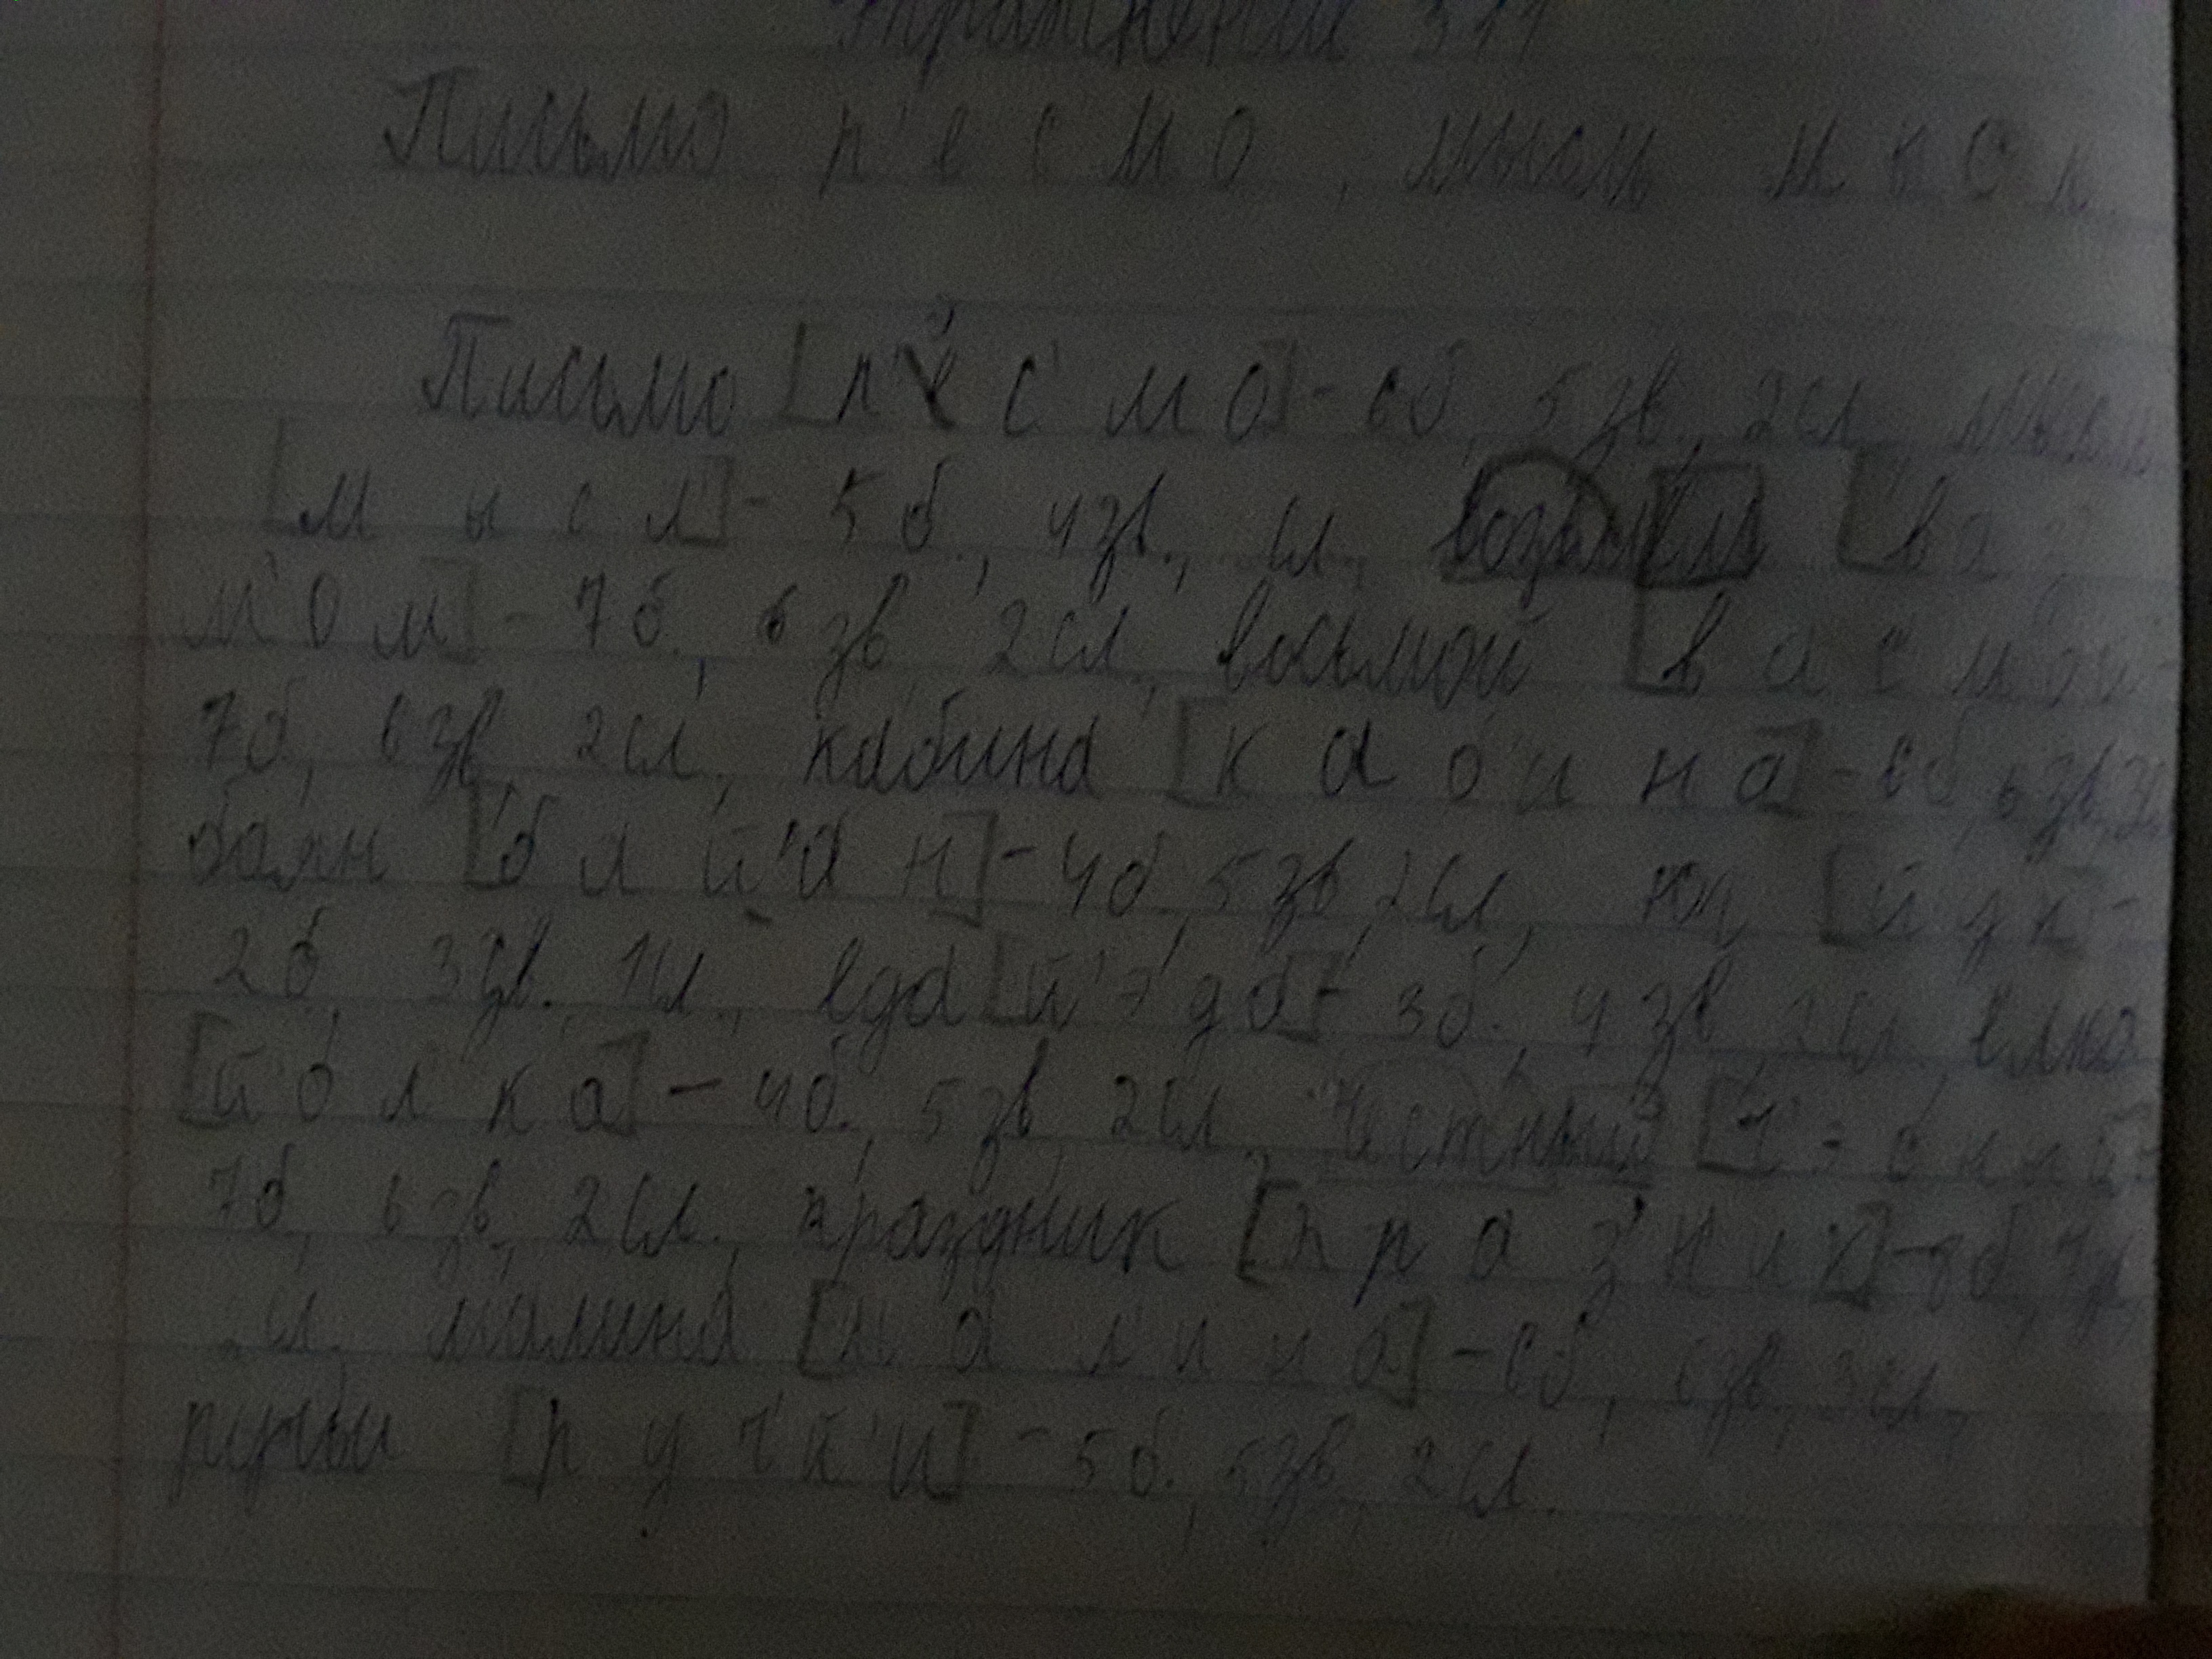 Упражнение 311
Письмо п' е с' м о, мысль м ы с л
Письмо [п' е с' м о] - 6б, 5 зв., 2сл, мысль
[м ы с л'] - 5 б., 4зв., сл., [в а
м' о м] - 7б., 6 зв, 2сл, восьмой [в а с' м о й'
7б, 6зв, 2сл, кабина [к а б' и н а] - 6б, 6зв, 3сл
баян [б а й' а н] - 4б, 5зв, 2сл, юг [й' у к] -
2б, 3зв., 1сл., еда [й' э д а] - 3б., 4 зв, 2сл елка
[й' о л к а] - 4б., 5 зв, 2сл. честный [ч' э с н ы й' -
7б, 6 зв, 2сл., праздник [п р а з' н' и к] - 8б, 7з
2сл. малина [м а л' и н а] - 6б, 6зв, 3сл,
ручьи [р у ч' й' и] - 5б., 5зв, 2сл.